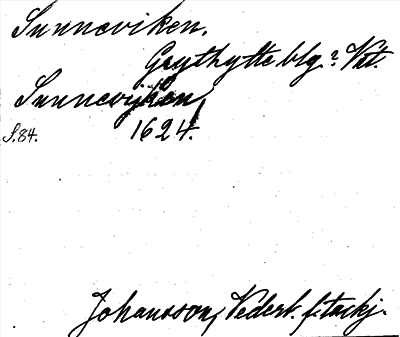 Sunneviken.
Grythytte blg? Vstl.
Sunnevijken
S. 84. 1624.
Johansson, Vedert. f. tackj.